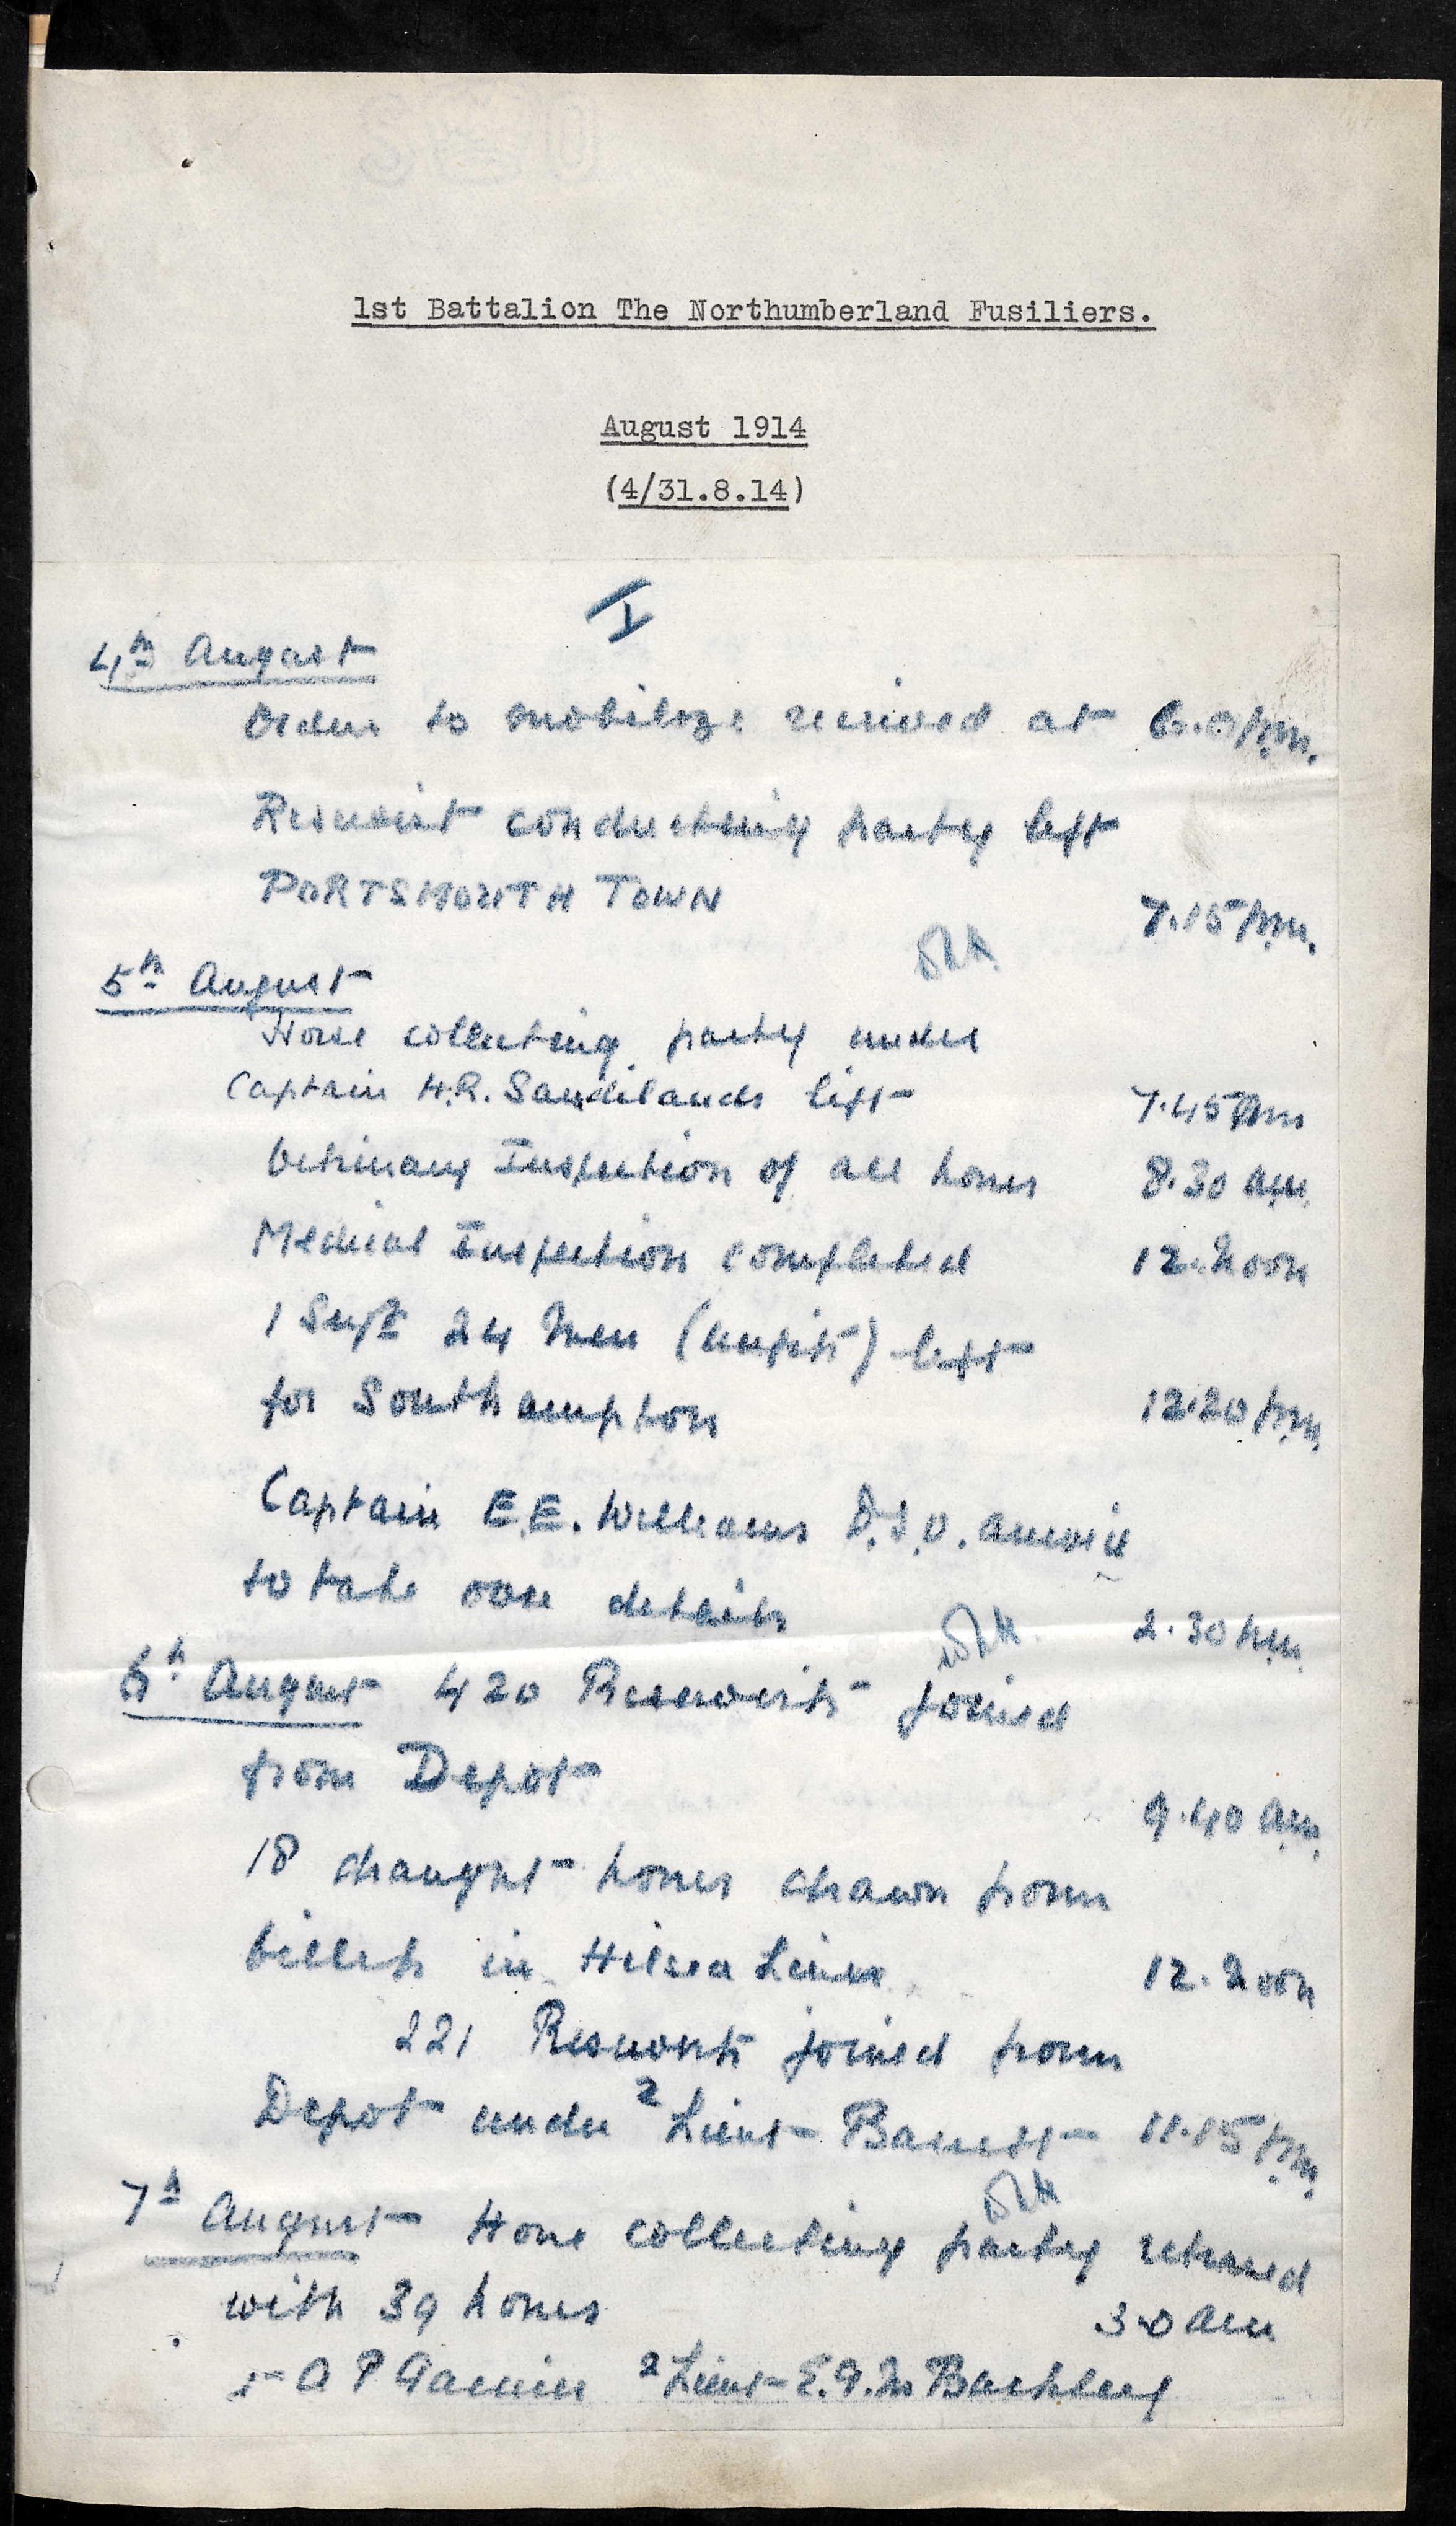 1st Battalion The Northumberland Fusiliers.
August 1914
(4/31.8.14)
I
4th August
Orders to mobilize received at 6.0 p.m.
Reservist conducting party left
PORTSMOUTH TOWN 7.15 p.m.
5th August
Horse collecting party under
Captain H.R. Sandilands left 7.45 am
Vetrinary Inspection of all horses 8.30 a.m.
Medical Inspection completed 12. Noon
1 Sergt 24 Men (unfit) left
for Southampton 12.20 p.m.
Captain E.E. Williams D.S.O. arrived
to take over details 2.30 p.m.
6th August 420 Reservists joined
from Depot 9.40 a.m.
18 draught horses drawn from
billets in Hilsea Lines 12. Noon
221 Reservists joined from
Depot under 2 Lieut Barrett 11.15 p.m.
7th August Horse collecting party returned
with 39 horses 3.0 am
A P Garnier 2 Lieut E. Barkley